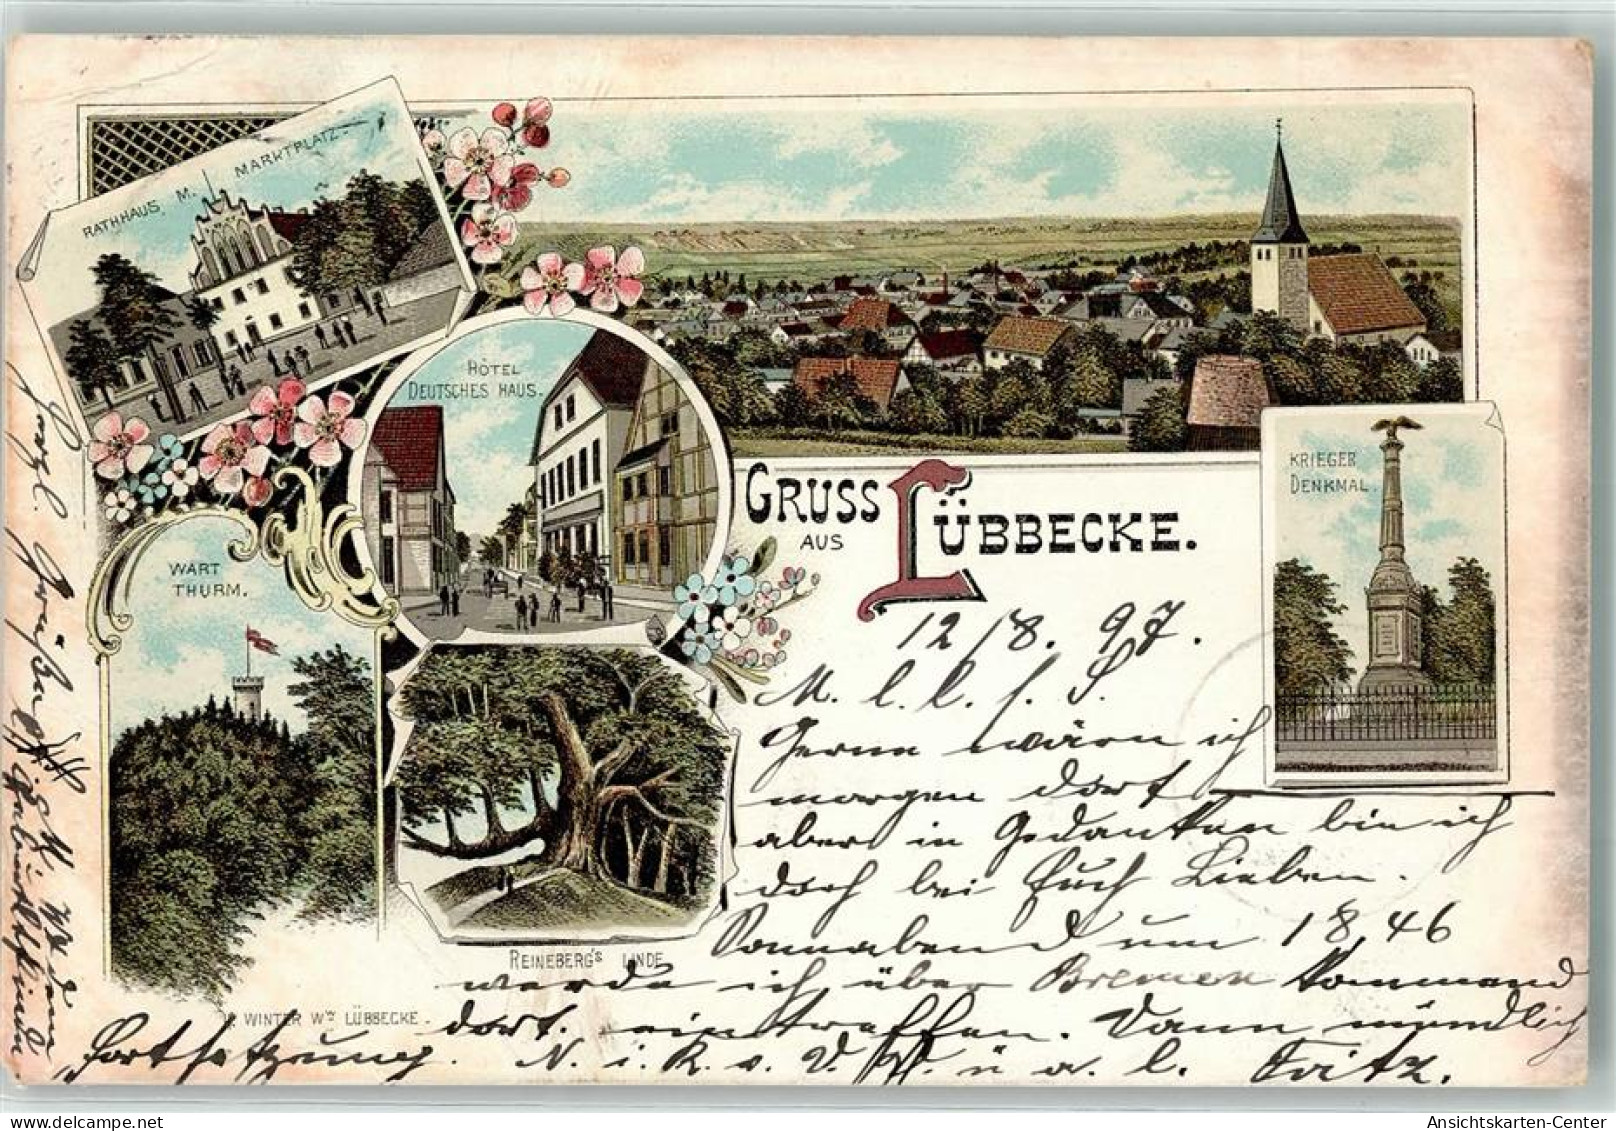 RATHHAUS M. MARKTPLATZ.
HÔTEL
DEUTSCHES HAUS.
KRIEGER
DENKMAL.
GRUSS
AUS
LÜBBECKE.
WART
THURM.
REINEBERG'S LINDE
WINTER Ww LÜBBECKE.
12/8. 97.
M. l. l. f. S.
Gerne wären ich
morgen dort
aber in Gedanken bin ich
doch bei Euch Lieben.
Sonnabend um 18 46
werde ich über Bremen kommand
dort eintreffen. Dann mündlich
Fortsetzung. N. i. K. v. D. W. ü a. l. Fritz.
Herzl. Grüße
Ansichtskarten-Center